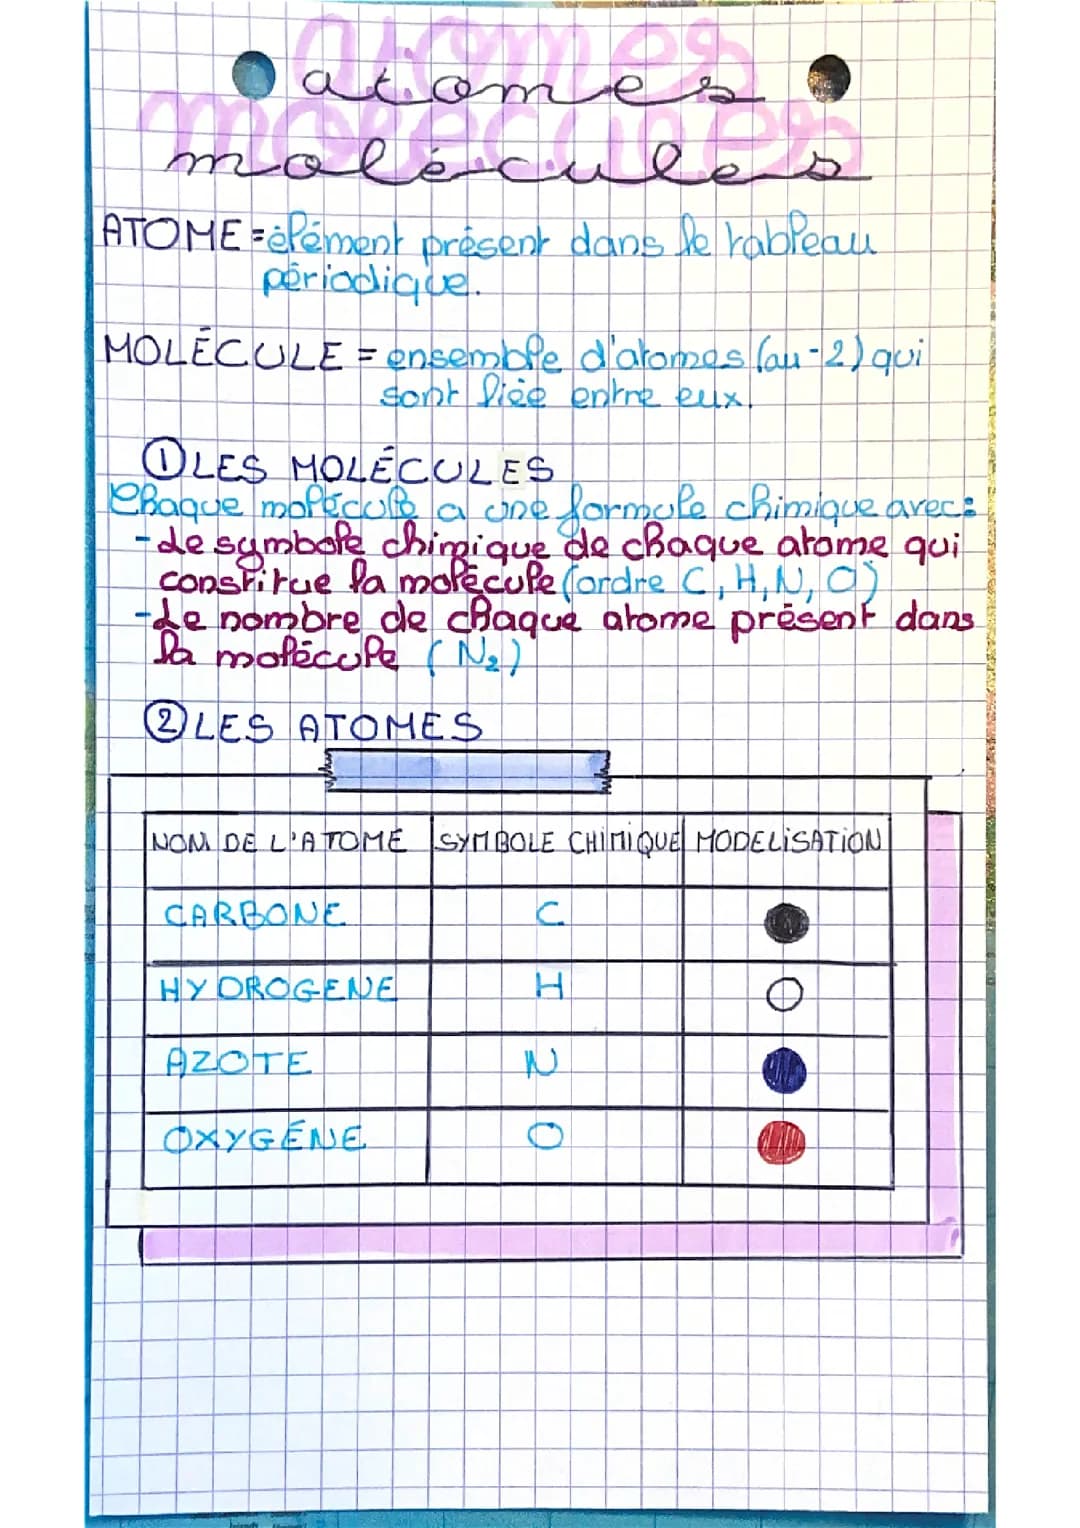 atomes
molécules
ATOME = élément présent dans le tableau
périodique.
MOLÉCULE = ensemble d'atomes (au - 2) qui
sont liée entre eux.
① LES MOLÉCULES
Chaque molécule a une formule chimique avec :
- Le symbole chimique de chaque atome qui
constitue la molécule (ordre C, H, N, O)
- Le nombre de chaque atome présent dans
la molécule (N₂)
② LES ATOMES
NOM DE L'ATOME SYMBOLE CHIMIQUE MODELISATION
CARBONE C
HYDROGENE H
AZOTE N
OXYGÉNE O